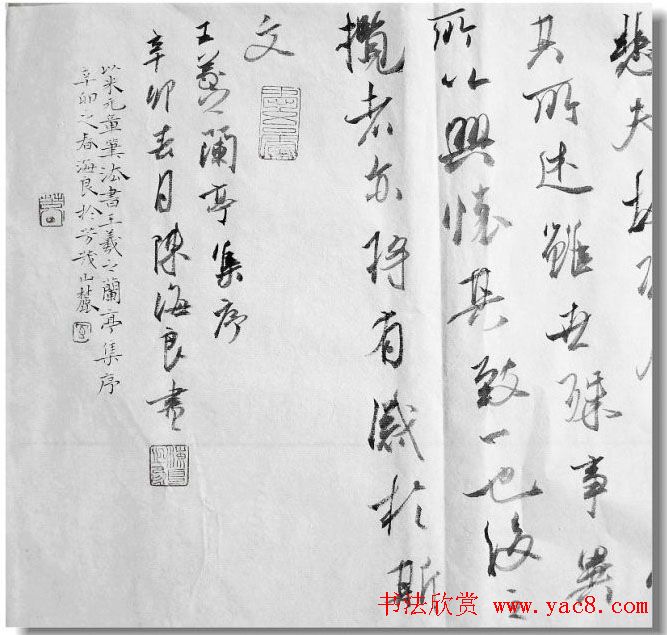 悲夫故
其所述雖世殊事異
所以興懷其致一也後之
攬者亦將有感於斯
文
王羲之蘭亭集序
辛卯春日陳海良書
以米元章筆法書王羲之蘭亭集序
辛卯之春海良於芳茂山麓
书法欣赏 www.yac8.com